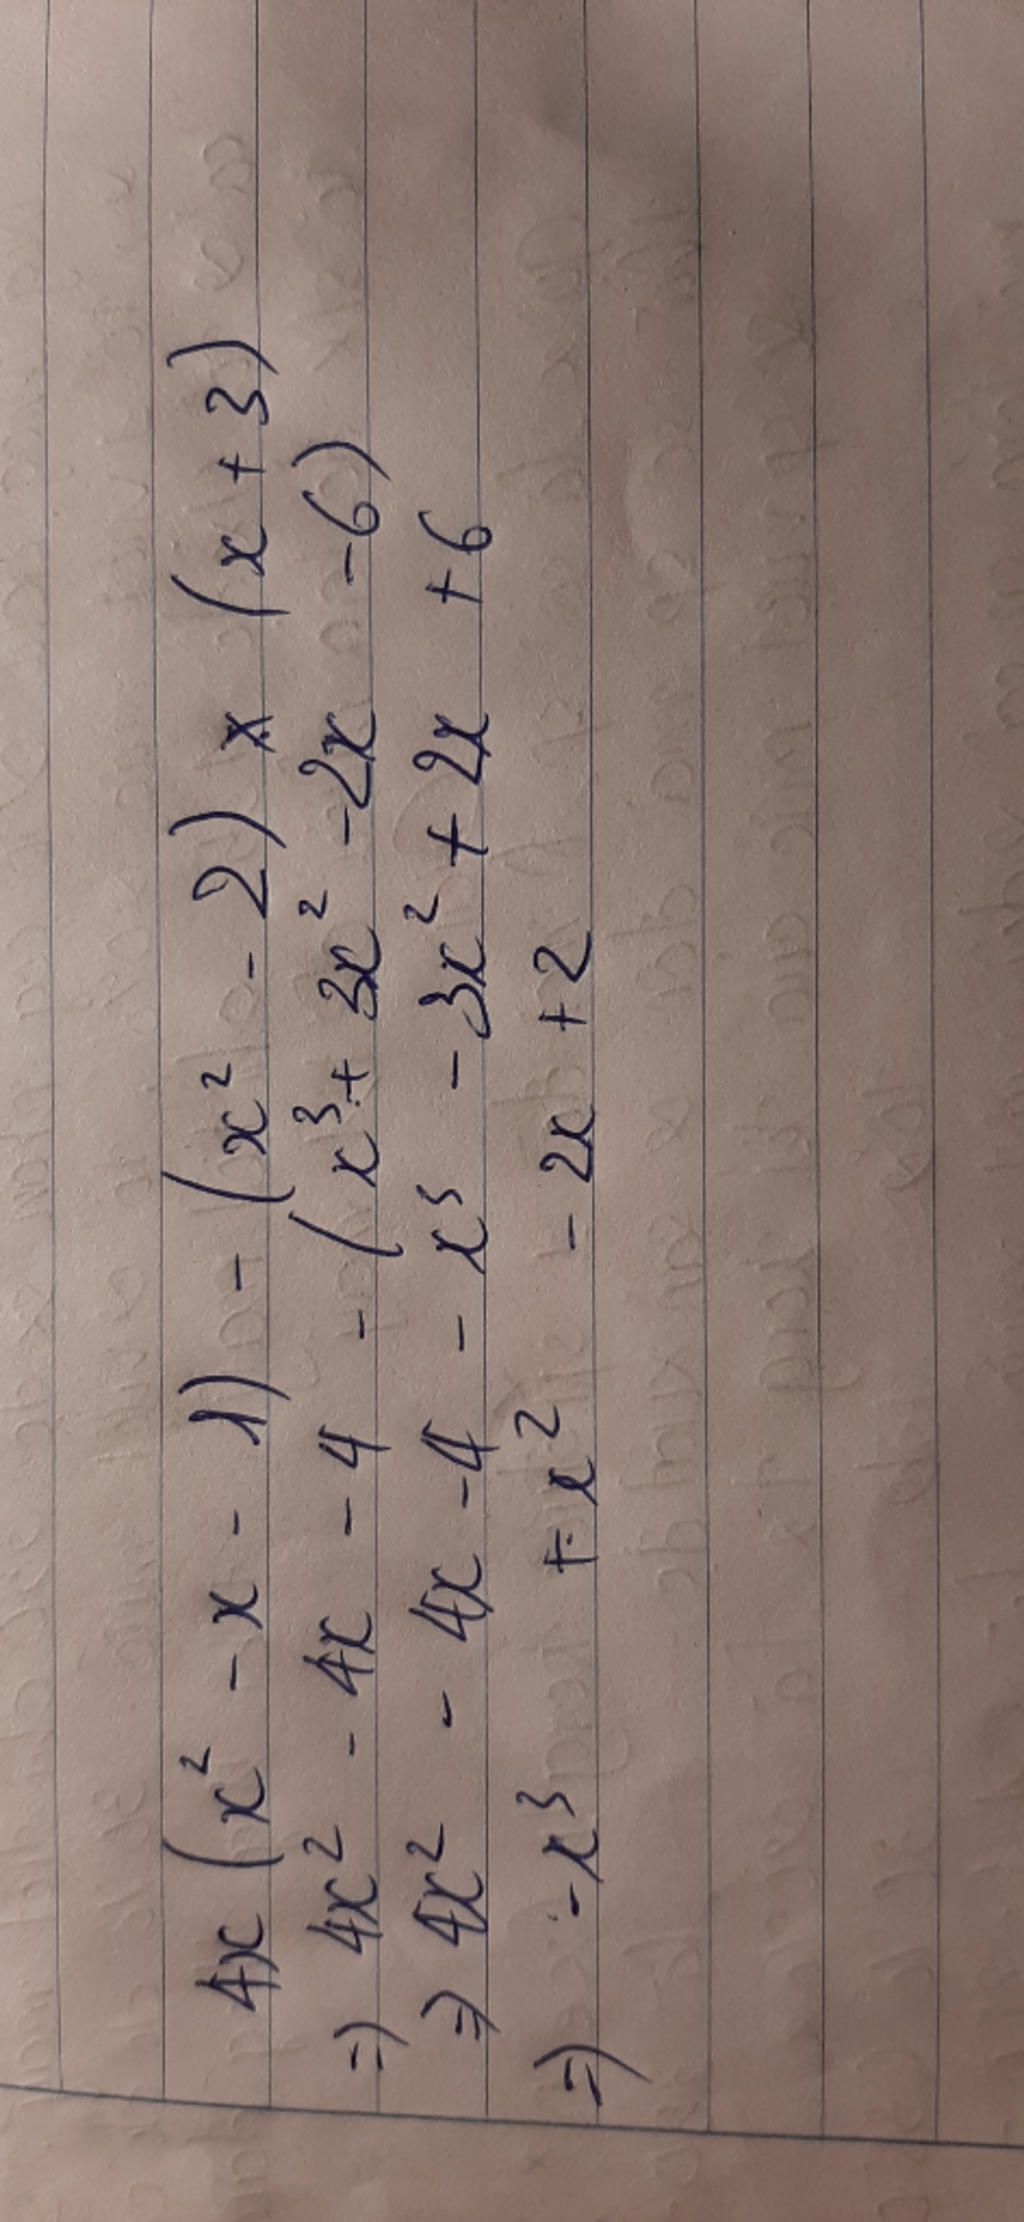 4x (x² - x - 1) - (x² - 2) × (x + 3)
=) 4x² - 4x - 4 - (x³ + 3x² - 2x - 6)
=) 4x² - 4x - 4 - x³ - 3x² + 2x + 6
=) - x³ + x² - 2x + 2